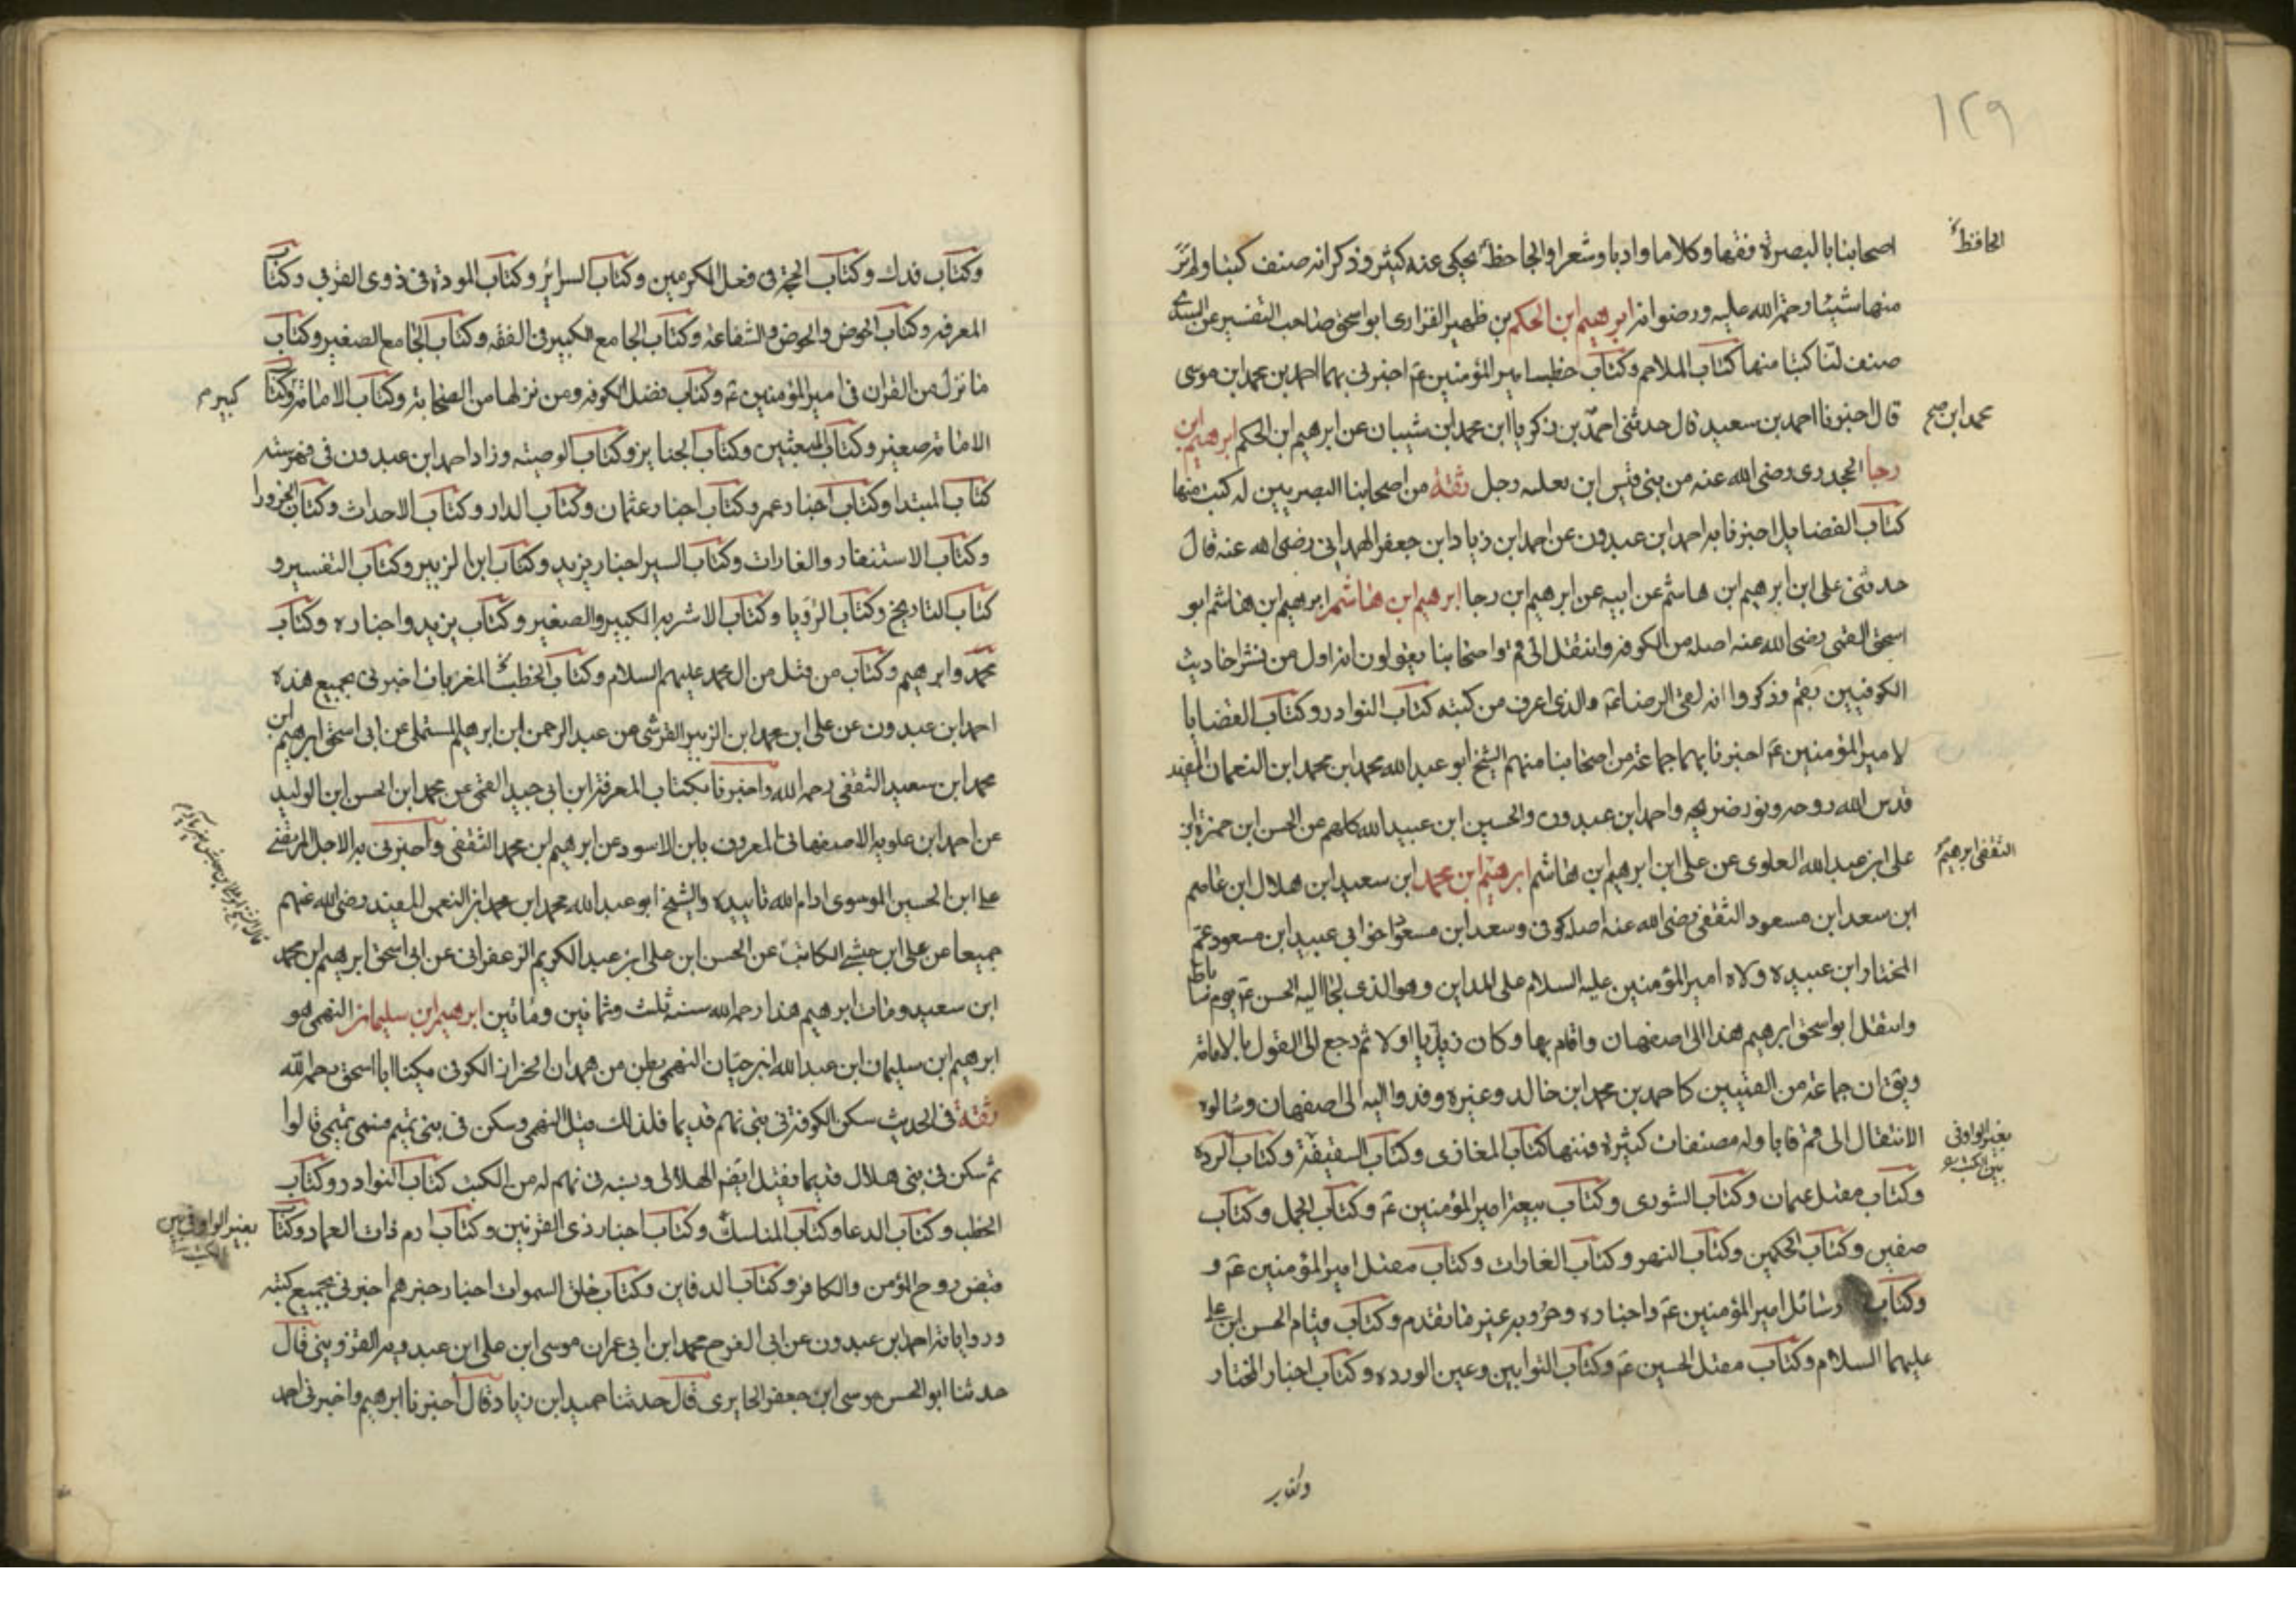 ١٢٩
الحافظ
اصحابنا بالبصرة فقها وكلاما وادبا وشعرا والجاحظ يحكى عنه كثيرا وذكر انه صنف كتبا ولم نر
منها شيئا رحمة الله عليه ورضوانه ابرهيم ابن الحكم بن ظهير الفزارى ابو اسحق صاحب التفسير عن السدى
صنف لنا كتبا منها كتاب الملاحم وكتاب خطب امير المؤمنين عم اخبرنى بهما احمد بن محمد ابن موسى
محمد ابن صح
قال اخبرنا احمد بن سعيد قال حدثنى احمد بن زكريا ابن محمد ابن شيبان عن ابرهيم ابن الحكم ابرهيم ابن
رجا الجحدرى رضى الله عنه من بنى قيس ابن ثعلبه رجل ثقة من اصحابنا البصريين له كتب منها
كتاب الفضايل اخبرنا به احمد ابن عبدون عن احمد ابن زياد ابن جعفر الهمدانى رضى الله عنه قال
حدثنى على ابن ابرهيم ابن هاشم عن ابيه عن ابرهيم ابن رجا ابرهيم ابن هاشم ابرهيم ابن هاشم ابو
اسحق القمى رضى الله عنه اصله من الكوفه وانتقل الى قم واصحابنا يقولون انه اول من نشر احاديث
الكوفيين بقم وذكروا انه لقى الرضا عم والذى اعرف من كتبه كتاب النوادر وكتاب القضايا
لامير المؤمنين عم اخبرنا بهما جماعة من اصحابنا منهم الشيخ ابو عبد الله محمد ابن محمد ابن النعمان المفيد
قدس الله روحه ونور ضريحه واحمد ابن عبدون والحسين ابن عبيد الله كلهم عن الحسن ابن حمزة ابن
الثقفى ابرهيم
على ابن عبد الله العلوى عن على ابن ابرهيم بن هاشم ابرهيم ابن محمد ابن سعيد ابن هلال ابن عاصم
ابن سعد ابن مسعود الثقفى رضى الله عنه اصله كوفى وسعد ابن مسعود اخو ابى عبيد ابن مسعود عم
المختار ابن عبيده ولاه امير المؤمنين عليه السلام على المداين وهو الذى لجا اليه الحسن عم يوم ساباط
وانتقل ابو اسحق ابرهيم هذا الى اصفهان واقام بها وكان زيديا اولا ثم رجع الى القول بالامامة
ويق ان جماعة من القميين كاحمد بن محمد ابن خالد وغيره وفدوا اليه الى اصفهان وسالوه
بغير الواو فى
بين الكتب
الانتقال الى قم فابا وله مصنفات كثيرة فمنها كتاب المغازى وكتاب السقيفة وكتاب الرده
وكتاب مقتل عثمان وكتاب الشورى وكتاب بيعة امير المؤمنين عم وكتاب الجمل وكتاب
صفين وكتاب الحكمين وكتاب النهر وكتاب الغارات وكتاب مقتل امير المؤمنين عم و
وكتاب رسائل امير المؤمنين عم واخباره وحروبه غير ما تقدم وكتاب قيام الحسن ابن على
عليهما السلام وكتاب مقتل الحسين عم وكتاب التوابين وعين الورده وكتاب اخبار المختار
وكتاب
وكتاب فدك وكتاب الحجة فى فعل المكرمين وكتاب السرائر وكتاب المودة فى ذوى القربى وكتاب
المعرفه وكتاب الحوض والحوض والشفاعة وكتاب الجامع الكبير فى الفقه وكتاب الجامع الصغير وكتاب
ما نزل من القران فى امير المؤمنين عم وكتاب فضل الكوفه ومن نزلها من الصحابة وكتاب الامامة وكتاب
كبير م
الامامة صغير وكتاب المبعثين وكتاب الجنايز وكتاب الوصيته وزاد احمد ابن عبدون فى فهرسته
كتاب المبتدا وكتاب اخبار عمر وكتاب اخبار عثمان وكتاب الدار وكتاب الاحداث وكتاب الحرورا
وكتاب الاستنفار والغارات وكتاب السير اخبار يزيد وكتاب ابن الزبير وكتاب التفسير و
كتاب التاريخ وكتاب الرؤيا وكتاب الاشربه الكبير والصغير وكتاب يزيد واخباره وكتاب
محمد وابرهيم وكتاب من قتل من ال محمد عليهم السلام وكتاب الخطب المغربات اخبرنى بجميع هذه
احمد ابن عبدون عن على ابن محمد ابن الزبير القرشى عن عبد الرحمن ابن ابرهيم المستملى عن ابى اسحق ابرهيم ابن
محمد ابن سعيد الثقفى رحمه الله واخبرنا بكتاب المعرفة ابن ابى جيد القمى عن محمد ابن الحسن ابن الوليد
عن احمد ابن علويه الاصفهانى المعروف بابن الاسود عن ابرهيم ابن محمد الثقفى واخبرنى به الاجل المرتضى
على ابن الحسين الموسوى ادام الله تاييده والشيخ ابو عبد الله محمد ابن محمد ابن النعمن المفيد رضى الله عنهم
جميعا عن على ابن حبشى الكاتب عن الحسن ابن على ابن عبد الكريم الزعفرانى عن ابى اسحق ابرهيم ابن محمد
ابن سعيد ومات ابرهيم هذا رحمه الله سنة ثلث وثمانين ومائتين ابرهيم ابن سليمان النهمى هو
ابرهيم ابن سليمان ابن عبد الله ابن حيان النهمى بطن من همدان الخزاز الكوفى يكنا ابا اسحق رحمه الله
ثقة فى الحديث سكن الكوفة فى بنى نهم قديما فلذلك قيل النهمى وسكن فى بنى تميم فسمى تميمى قالوا
ثم سكن فى بنى هلال قديما فقيل ايضا الهلالى ونسبه فى نهم له من الكتب كتاب النوادر وكتاب
الخطب وكتاب الدعا وكتاب المناسك وكتاب اخبار ذى القرنين وكتاب ارم ذات العماد وكتاب
بغير الواو فى بين
الكتب
قبض روح المؤمن والكافر وكتاب الدفاين وكتاب خلق السموات اخبار جرهم اخبرنى بجميع كتبه
ورواياته احمد ابن عبدون عن ابى الفرح محمد ابن ابى عمران موسى ابن على ابن عبدويه القزوينى قال
حدثنا ابو الحسن موسى ابن جعفر الحايرى قال حدثنا حميد ابن زياد قال اخبرنا ابرهيم واخبرنى احمد